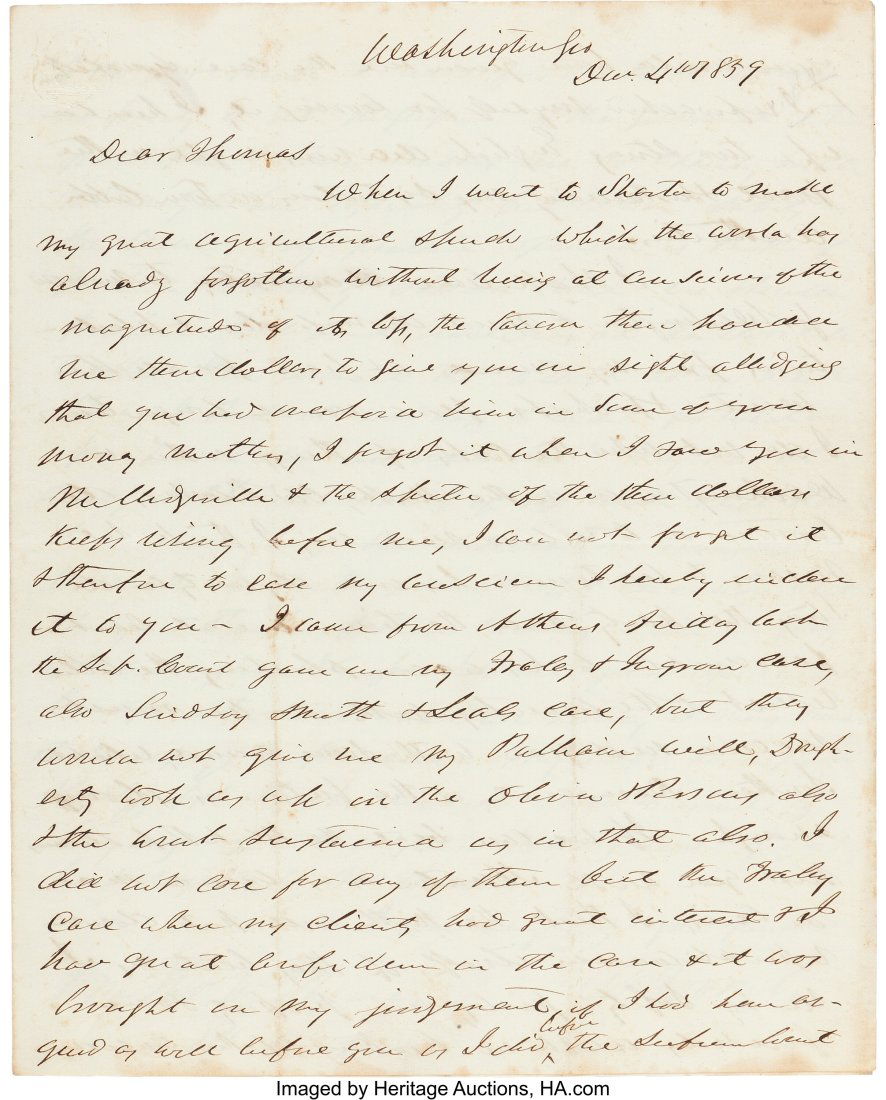 Washington Geo
Dec. 4th 1859
Dear Thomas
When I went to Sparta to make
my great agricultural speech which the world has
already forgotten without being at conscious of the
magnitude of its loss, the tavern then handed
me three dollars to give you on sight alledging
that you had overpaid him in some of your
money matters, I forgot it when I saw you in
Milledgeville & the spectre of the three dollars
keeps rising before me, I can not forget it
& therefore to ease my conscience I hereby inclose
it to you – I came from Athens Friday last
the Sup. Court gave me my Fraley & Ingram case,
also Lindsey Smith & Seals case, but they
would not give me my Pulliam will, Dough-
erty took us up in the Oliver & Persons also
& the Court sustained us in that also. I
did not care for any of them but the Fraley
case when my clients had great interest & I
had great confidence in the case & it was
brought on my judgement, if I had have ar-
gued as well before you as I did before the Supreme Court
Imaged by Heritage Auctions, HA.com